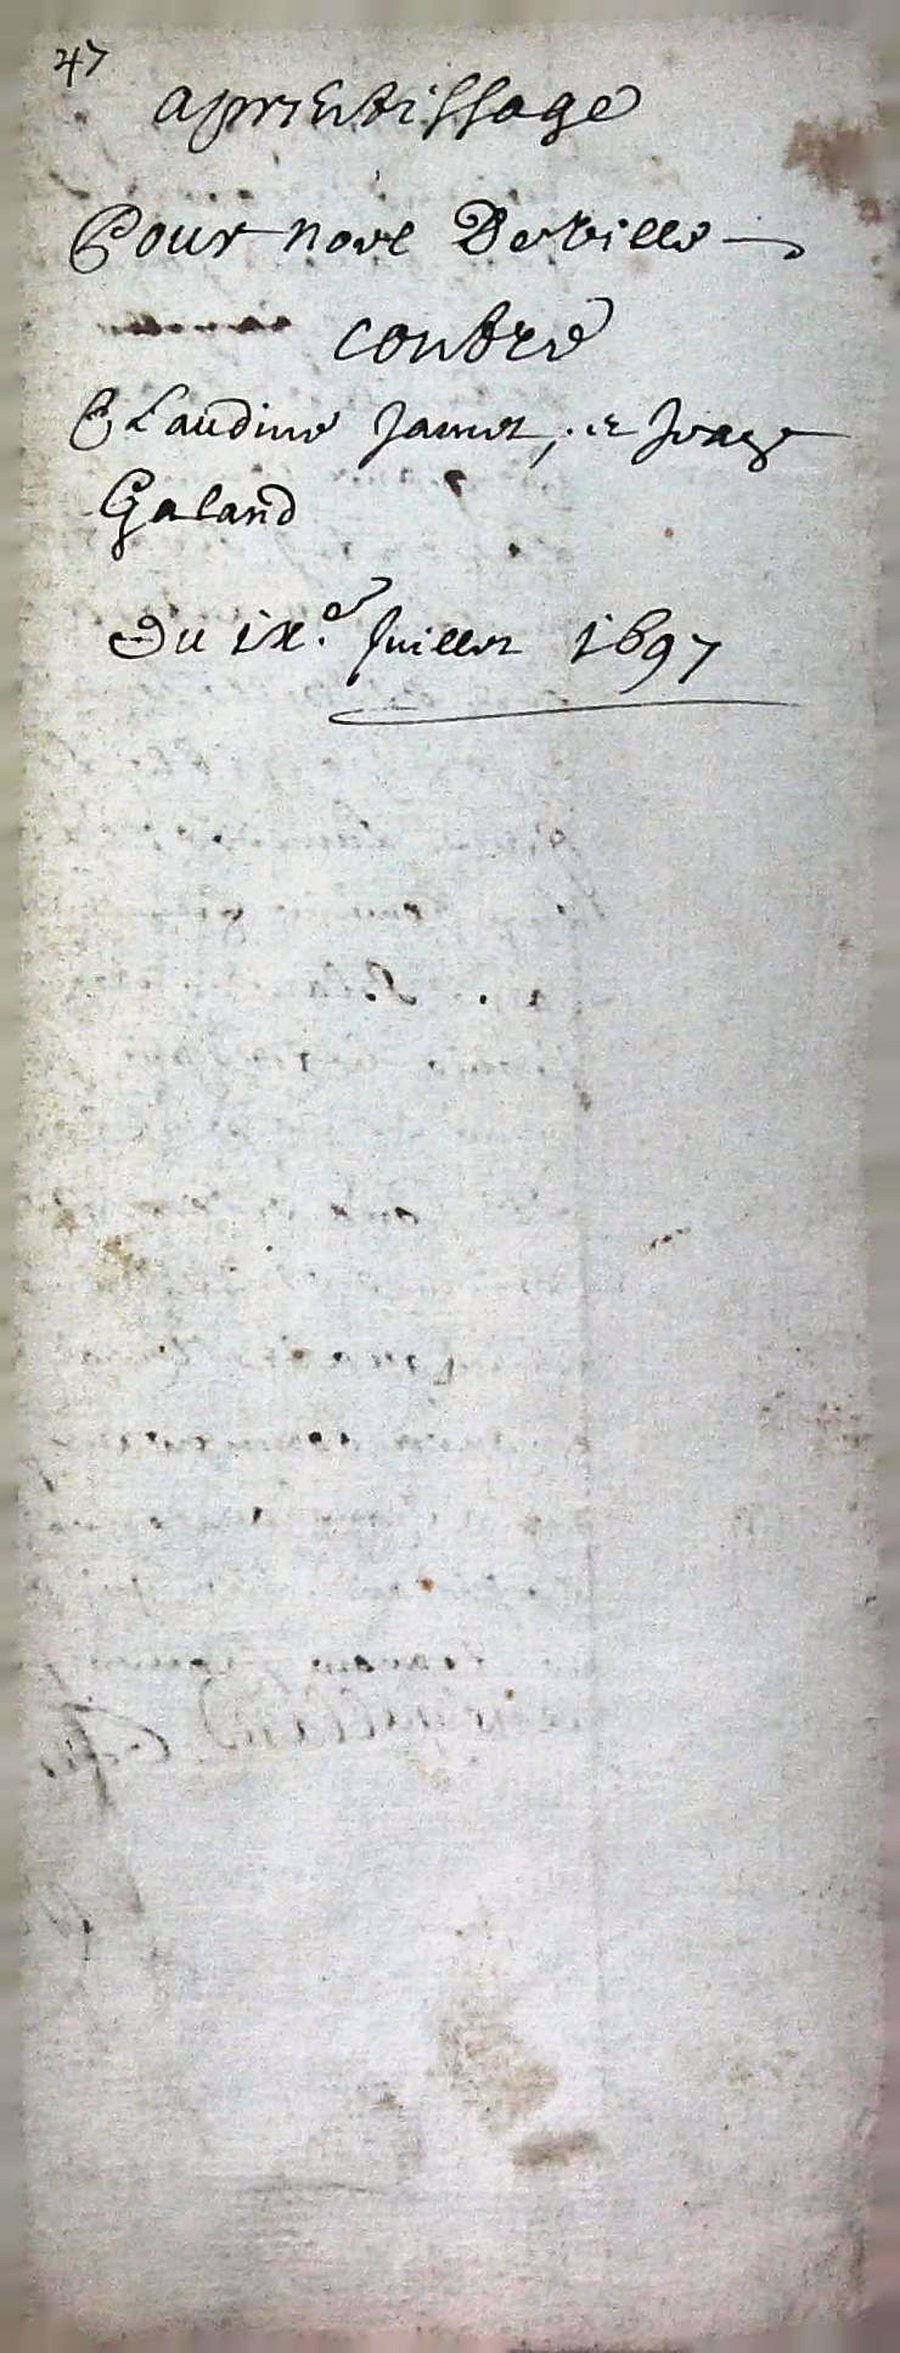 47
aprentissage
Pour noel Derville
contre
Claudine Jamet, et
Galand
Du ixe Juillet 1697